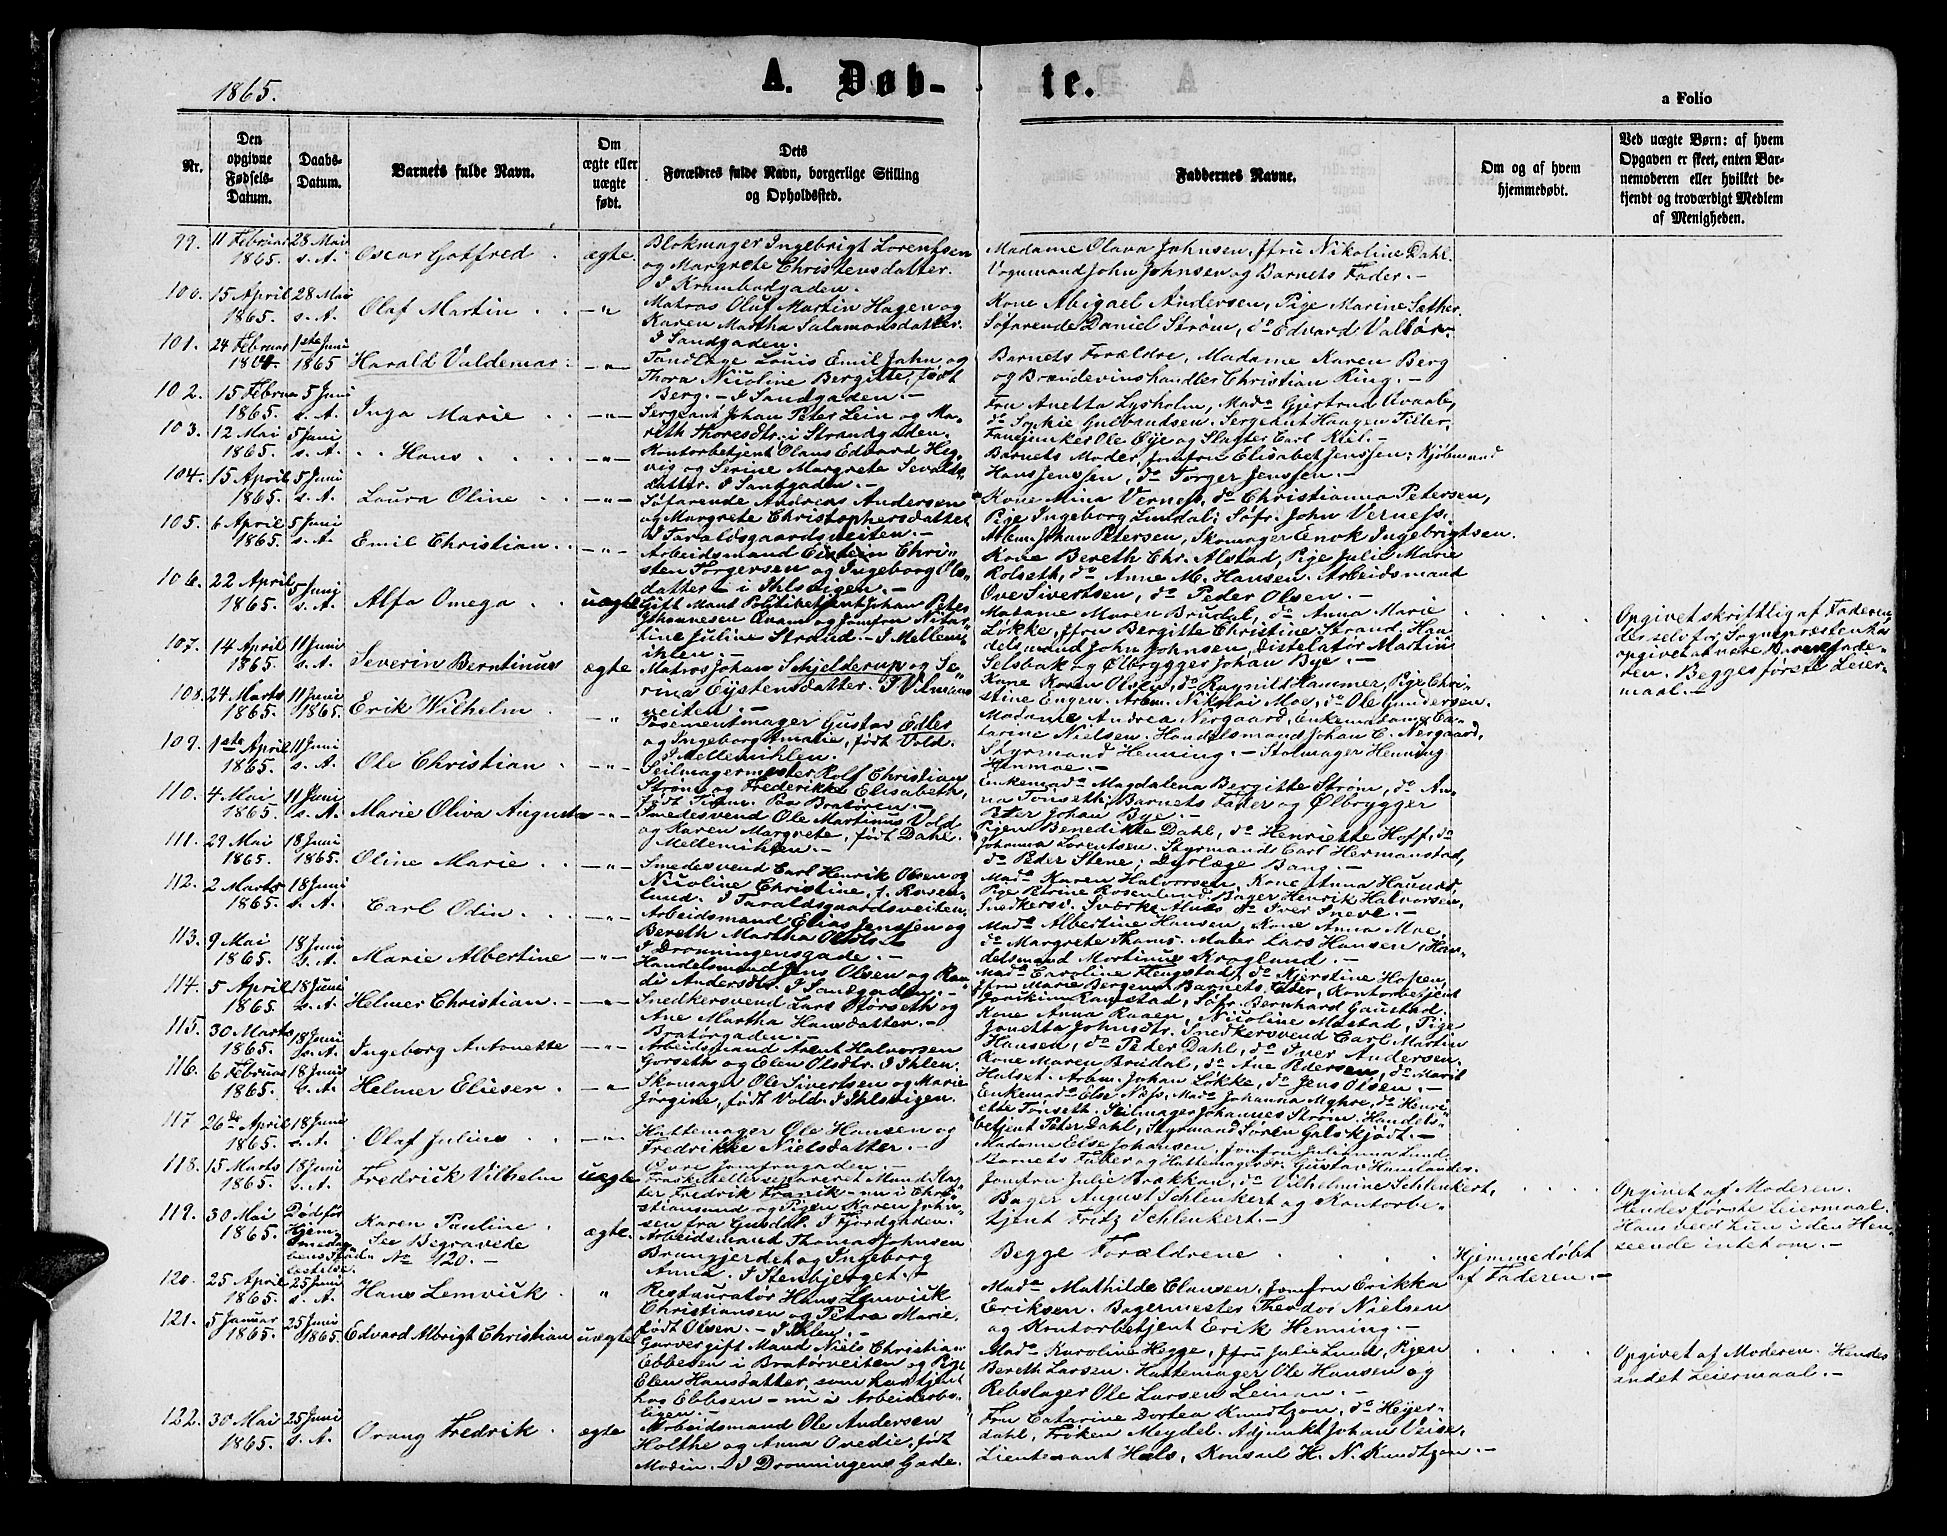 1865.
A. Døb-
te.
a Folio
Nr.
Den opgivne Fødsels-Datum.
Daabs-Datum.
Barnets fulde Navn.
Om ægte eller uægte født.
Dets
Forældres fulde Navn, borgerlige Stilling
og Opholdssted.
Faddernes Navne.
Om og af hvem
hjemmedøbt.
Ved uægte Børn: af hvem
Opgaven er skeet, enten Bar-
nemoderen eller hvilket be-
kjendt og troværdigt Medlem
af Menigheden.
99. 11 Februar 1865. 28 Mai s. A. Oscar Gotfred ægte
Blokmager Ingebrigt Lorentsen
og Margrete Christensdatter.
I Krambodgaden.
Madame Olava Johnsen, Jfru Nikoline Dahl.
Vognmand John Johnsen og Barnets Fader. -
100. 15 April 1865. 28 Mai s. A. Olaf Martin -"-
Matros Oluf Martin Hagen og
Karen Martha Salamonsdatter.
I Sandgaden.
Kone Abigael Andersen, Pige Marine Sæther.
Søfarende Daniel Strøm, do Edvard
101. 24 Februar 1864. 1ste Juni 1865 Harald Valdemar -"-
Tandlæge Louis Emil Jahn og
Thora Nicoline Bergitte, født
Berg. - I Sandgaden. -
Barnets Forældre, Madame Karen Berg
og Brændevinshandler Christian Ring. -
102. 15 Februar 1865. 5 Juni s. A. Inga Marie -"-
Sergeant Johan Peter Lein og Ma-
reth Thoresdtr. i Strandgaden.
Fru Anetta Lysholm, Mada Gjertrud
do Sophie Gulbrandsen. Sergeant Haagen Tiller,
Fanejunker Ole Øye og Slagter Carl Kiel. -
103. 12 Mai 1865. 5 Juni s. A. Hans -"-
Kontorbetjent Olaus Edvard
og Serine Margrete
datter. I Sandgaden. -
Barnets Moder Jomfru Elisabet Jenssen; Kjøbmand
Hans Jenssen, do Torger Jenssen. -
104. 15 April 1865. 5 Juni s. A. Laura Oline -"-
Søfarende Andreas Andersen
og Margrete Christophersdatter
I Taraldsgaardsveiten. -
Kone Mina Verness, do Christianna Petersen,
Pige Ingeborg Lundal; Søfr. John Verness,
Arbm. Johan Petersen, Skomager Enok Ingebrigtsen.
105. 6 April 1865. 5 Juni s. A. Emil Christian -"-
Arbeidsmand Chri-
sten Torgersen og Ingeborg Ols-
datter - i Ihlsvigen. -
Kone Bereth Chr. Alstad, Pige Julie Marie
Rolseth, do Anne M. Hansen. Arbeidsmand
Ove Sivertsen, do Peder Olsen. -
106. 22 April 1865. 5 Juni s. A. Alfa Omega uægte
Gift Mand Politibetjent Johan Peter
Johannesen Qvam og Jomfru
Juline Strand. - I Mellem-
ihlen. -
Madame Maren Brudal, do Anna Marie
Løkke, Jfru Bergitte Christine Strand, Han-
delsmand John Johnsen, Distelatør Martin
Selsbak og Ølbrygger Johan Bye. -
Opgivet skriftlig af Faderen
der selv for Sognepræsten har
opgivet at være Barnefade-
ren. Begges første Leier-
maal. -
107. 14 April 1865. 11 Juni s. A. Severin Berntinus ægte
Matros Johan Schjelderup og Se-
rina Eystensdatter. I
veiten. -
Kone Karen Olsen, do Ragnild Hammer, Pige Chri-
stine Engen. Arbm. Nikolai Moe, do Ole Gundersen.
108. 24 Marts 1865. 11 Juni 1865. Erik Wilhelm -"-
Posementmager Gustav Edler
og Ingeborg Amalie, født Vold.
I Mellemihlen.
Madame Andrea Nergaard, Enkemadame Ca-
tarine Nielsen. Handelsmand Johan C. Nergaard,
Styrmand Henning. - Stolmager Henning
Henmoe. -
109. 1ste April 1865. 11 Juni s. A. Ole Christian -"-
Seilmagermester Rolf Christian
Strøm og Frederikke Elisabeth,
født . Paa Bratøren. -
Enkemada Magdalena Bergitte Strøm, do An-
na Tonseth; Barnets Fader og Ølbrygger
Peter Johan Bye. -
110. 4 Mai 1865. 11 Juni s. A. Marie Oliva Augusta -"-
Smedesvend Ole Martinus Vold
og Karen Margrete, født Dahl.
Mellemihlen. -
Pigen Benedikte Dahl, do Henriette Hoff, do
Johanna Lorentsen. Styrmand Carl Hermanstad,
do Peder Stene; Dyrlæge Bang. -
111. 29 Mai 1865. 18 Juni 1865. Oline Marie -"-
Smedesvend Carl Henrik Olsen og
Nicoline Christine, f. Rosen-
lund. I Taraldsgaardsveiten.
Mada Karen Halvorsen, Kone Anna
Pige Perine Rosenlund. Bager Henrik Halvorsen,
Snedkersv. Sværke do Iver Sneve. -
112. 2 Marts 1865. 18 Juni s. A. Carl Odin -"-
Arbeidsmand Elias Jenssen og
Bereth Martha Olsdtr.
I Dronningensgade. -
Mada Albertine Hansen, Kone Anna Moe,
do Margrete Thams. Maler Lars Hansen, Han-
delsmand Mortinus Kroglund. -
113. 9 Mai 1865. 18 Juni s. A. Marie Albertine -"-
Handelsmand Jens Olsen og Ran-
di Andersdtr. I Sandgaden. -
Mada Caroline Flengstad, do Kjerstine Hofsen,
Jfru Marie Bergem. Barnets Fader, Kontorbetjent
Joruikim Ramstad, Søfr. Bernhard Gaustad.
114. 5 April 1865. 18 Juni s. A. Helmer Christian -"-
Snedkersvend Lars Størseth og
Ane Martha Hansdatter. -
Bratørgaden. -
Kone Anna Raaen, Nicoline Mastad, Pige
Jonetta Johnsdtr. Snedkersvend Carl Martin
Hansen, do Peter Dahl, do Iver Andersen.
115. 30 Marts 1865. 18 Juni s. A. Ingeborg Antonette -"-
Arbeidsmand Arent Halvorsen
Gorseth og Elen Olsdtr. I Ihlen.
Kone Maren Brudal, do Ane Pedersen, do Marit
Halset. Arbm. Johan Løkke, do Jens Olsen. -
116. 6 Februar 1865. 18 Juni s. A. Helmer Elieser -"-
Skomager Ole Sivertsen og Marie
Jørgine, født Vold. I Ihlsvigen.
Enkemada Else Næss, Mada Johanna Myhre, do Henri-
ette Tønseth. Seilmager Johannes Strøm, Handels-
betjent Peter Dahl, Styrmand Søren Galskjødt. -
117 26de April 1865. 18 Juni s. A. Olaf Julius -"-
Hattemager Ole Hansen og
Fredrikke Nielsdatter. -
Øvre Jomfrugaden. -
Madame Else Johansen, Jomfru Julianna Lund.
Barnets Fader og Hattemagersv. Gustav Hamlander.
118. 15 Marts 1865. 18 Juni s. A. Fredrick Vilhelm uægte
Fraskilt eller separeret Mand Slag-
ter Fredrik Franik - nu i Chri-
stiansund og Pigen Karen Johan-
sen fra Gusdal. I Fjordgaden. -
Jomfru Julie Brækkan, do Vilhelmine Schlenkert,
Bager August Schlenkert og Kontorbe-
tjent Fritz Schlenkert. -
Opgivet af Moderen.
Hendes første Leiermaal.
Hans veed hun i den Hen-
seende intet om. -
119. 30 Mai 1865. Død før Hjemmedaabens Stadfæstelse. Karen Pauline See Begravede No 120. - ægte
Arbeidsmand Thomas Johnsen
Brungjerdet og Ingeborg
Anna. I Stenbjerget. -
Begge Forældrene
Hjemmedøbt
af Faderen. -
120. 25 April 1865. 25 Juni s. A. Hans Lemvick "
Restauratør Hans Lemvick
Christiansen og Petra Marie,
født Olsen. - I Ihlen. -
Mada Mathilde Clausen, Jomfru Erikka
Eriksen. Bagermester Theodor Nielsen
og Kontorbetjent Erik Henning. -
121. 5 Januar 1865. 25 Juni 1865. Edvard Albrigt Christian uægte
Garver gift Mand Niels Christian
Ebbesen i Bratørveiten og Pige
Elen Hansdatter, som har tjent
hos Ebbesen - nu i Arbeiderbo-
ligen. -
Mada Karoline Hegge, Jfru Julie Lund, Pigen
Bereth Larsen. Hattemager Ole Hansen og
Rebslager Ole Larsen Leinan. -
Opgivet af Moderen. Hendes
andet Leiermaal. -
122. 30 Mai 1865. 25 Juni s. A. Orang Fredrik ægte
Arbeidsmand Ole Andersen
Holthe og Anna Ovedie, født
Modin. - I Dronningens Gade.
Fru Catarine Dortea Knudtzon, do Heyer-
dahl, Frøken Meydel. Adjunkt Johan Veise,
Lieutenant Hals, Konsul H. N. Knudtzon. -